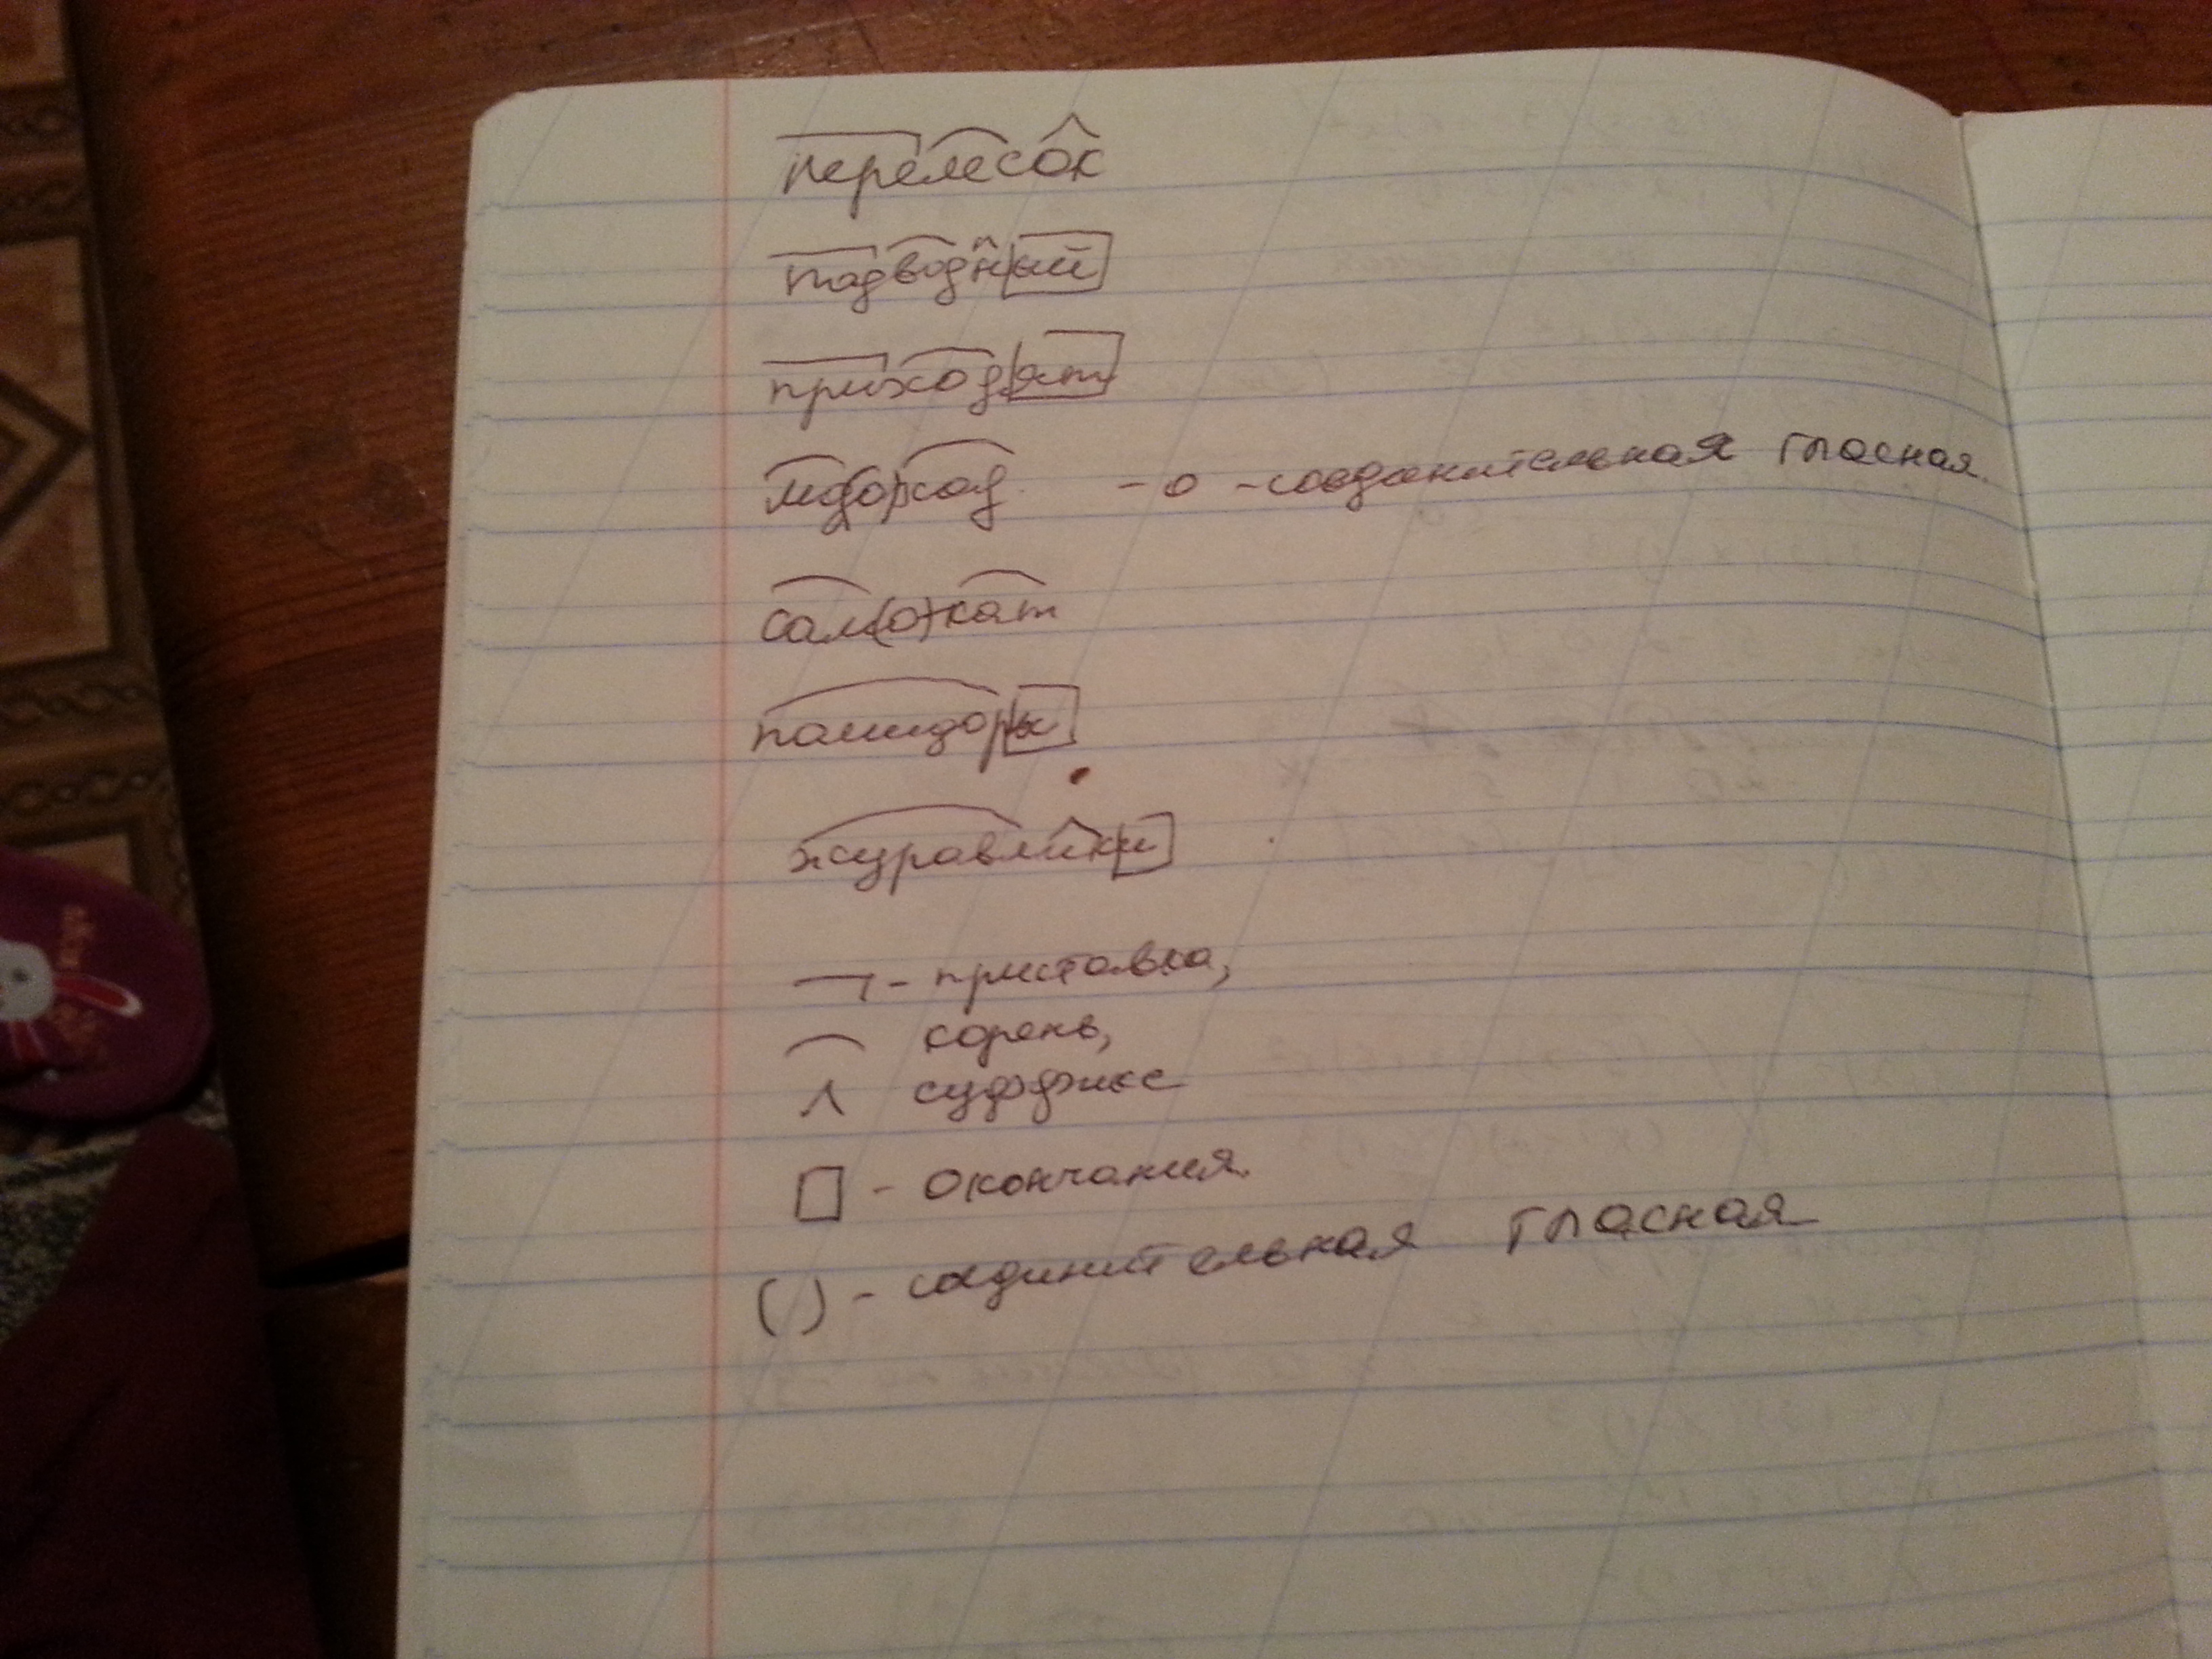 перелесок
подводный
приходят
мед(о)ход - о - соединительная гласная.
сам(о)кат
помидоры
журавлики
- приставка,
корень,
суффикс
- окончания.
( ) - соединительная гласная